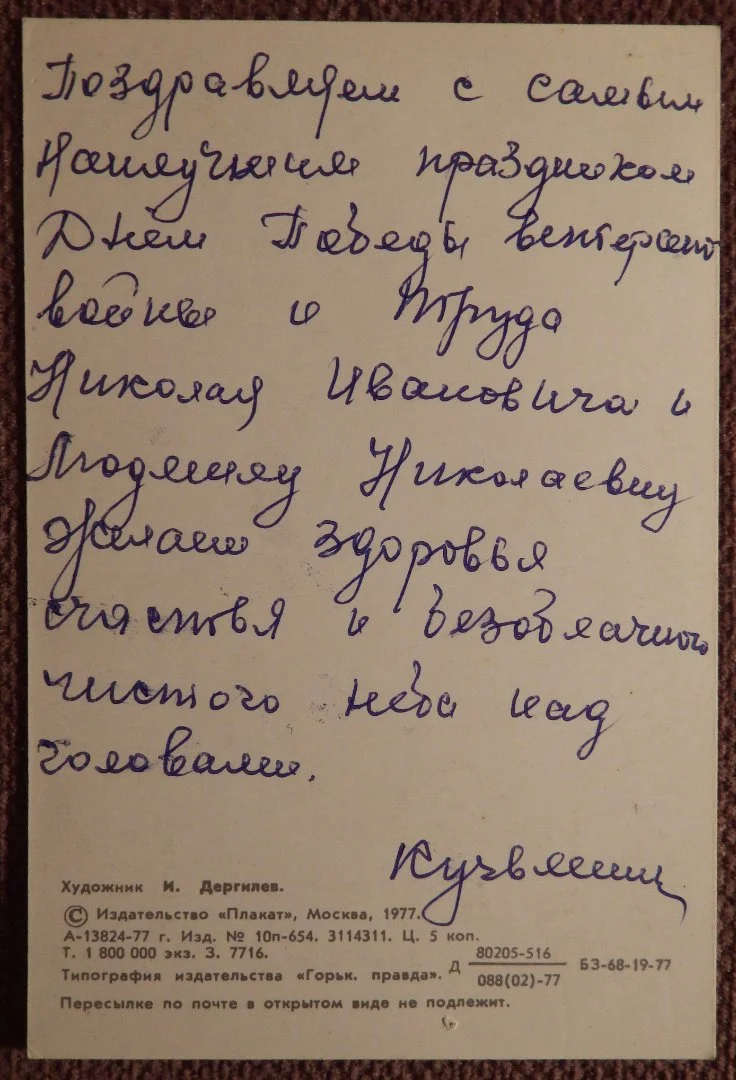 Поздравляем с самым
Наилучшим праздником
Днём Победы
войны и труда
Николая Ивановича и
Людмилу Николаевну
Желаем здоровья
счастья и безоблачного
чистого неба над
головами.
Художник И. Дергилев.
© Издательство «Плакат», Москва, 1977.
А-13824-77 г. Изд. № 10п-654. 3114311. Ц. 5 коп.
Т. 1 800 000 экз. З. 7716.
Типография издательства «Горьк. правда». Д 80205-516 / 088(02)-77 БЗ-68-19-77
Пересылке по почте в открытом виде не подлежит.